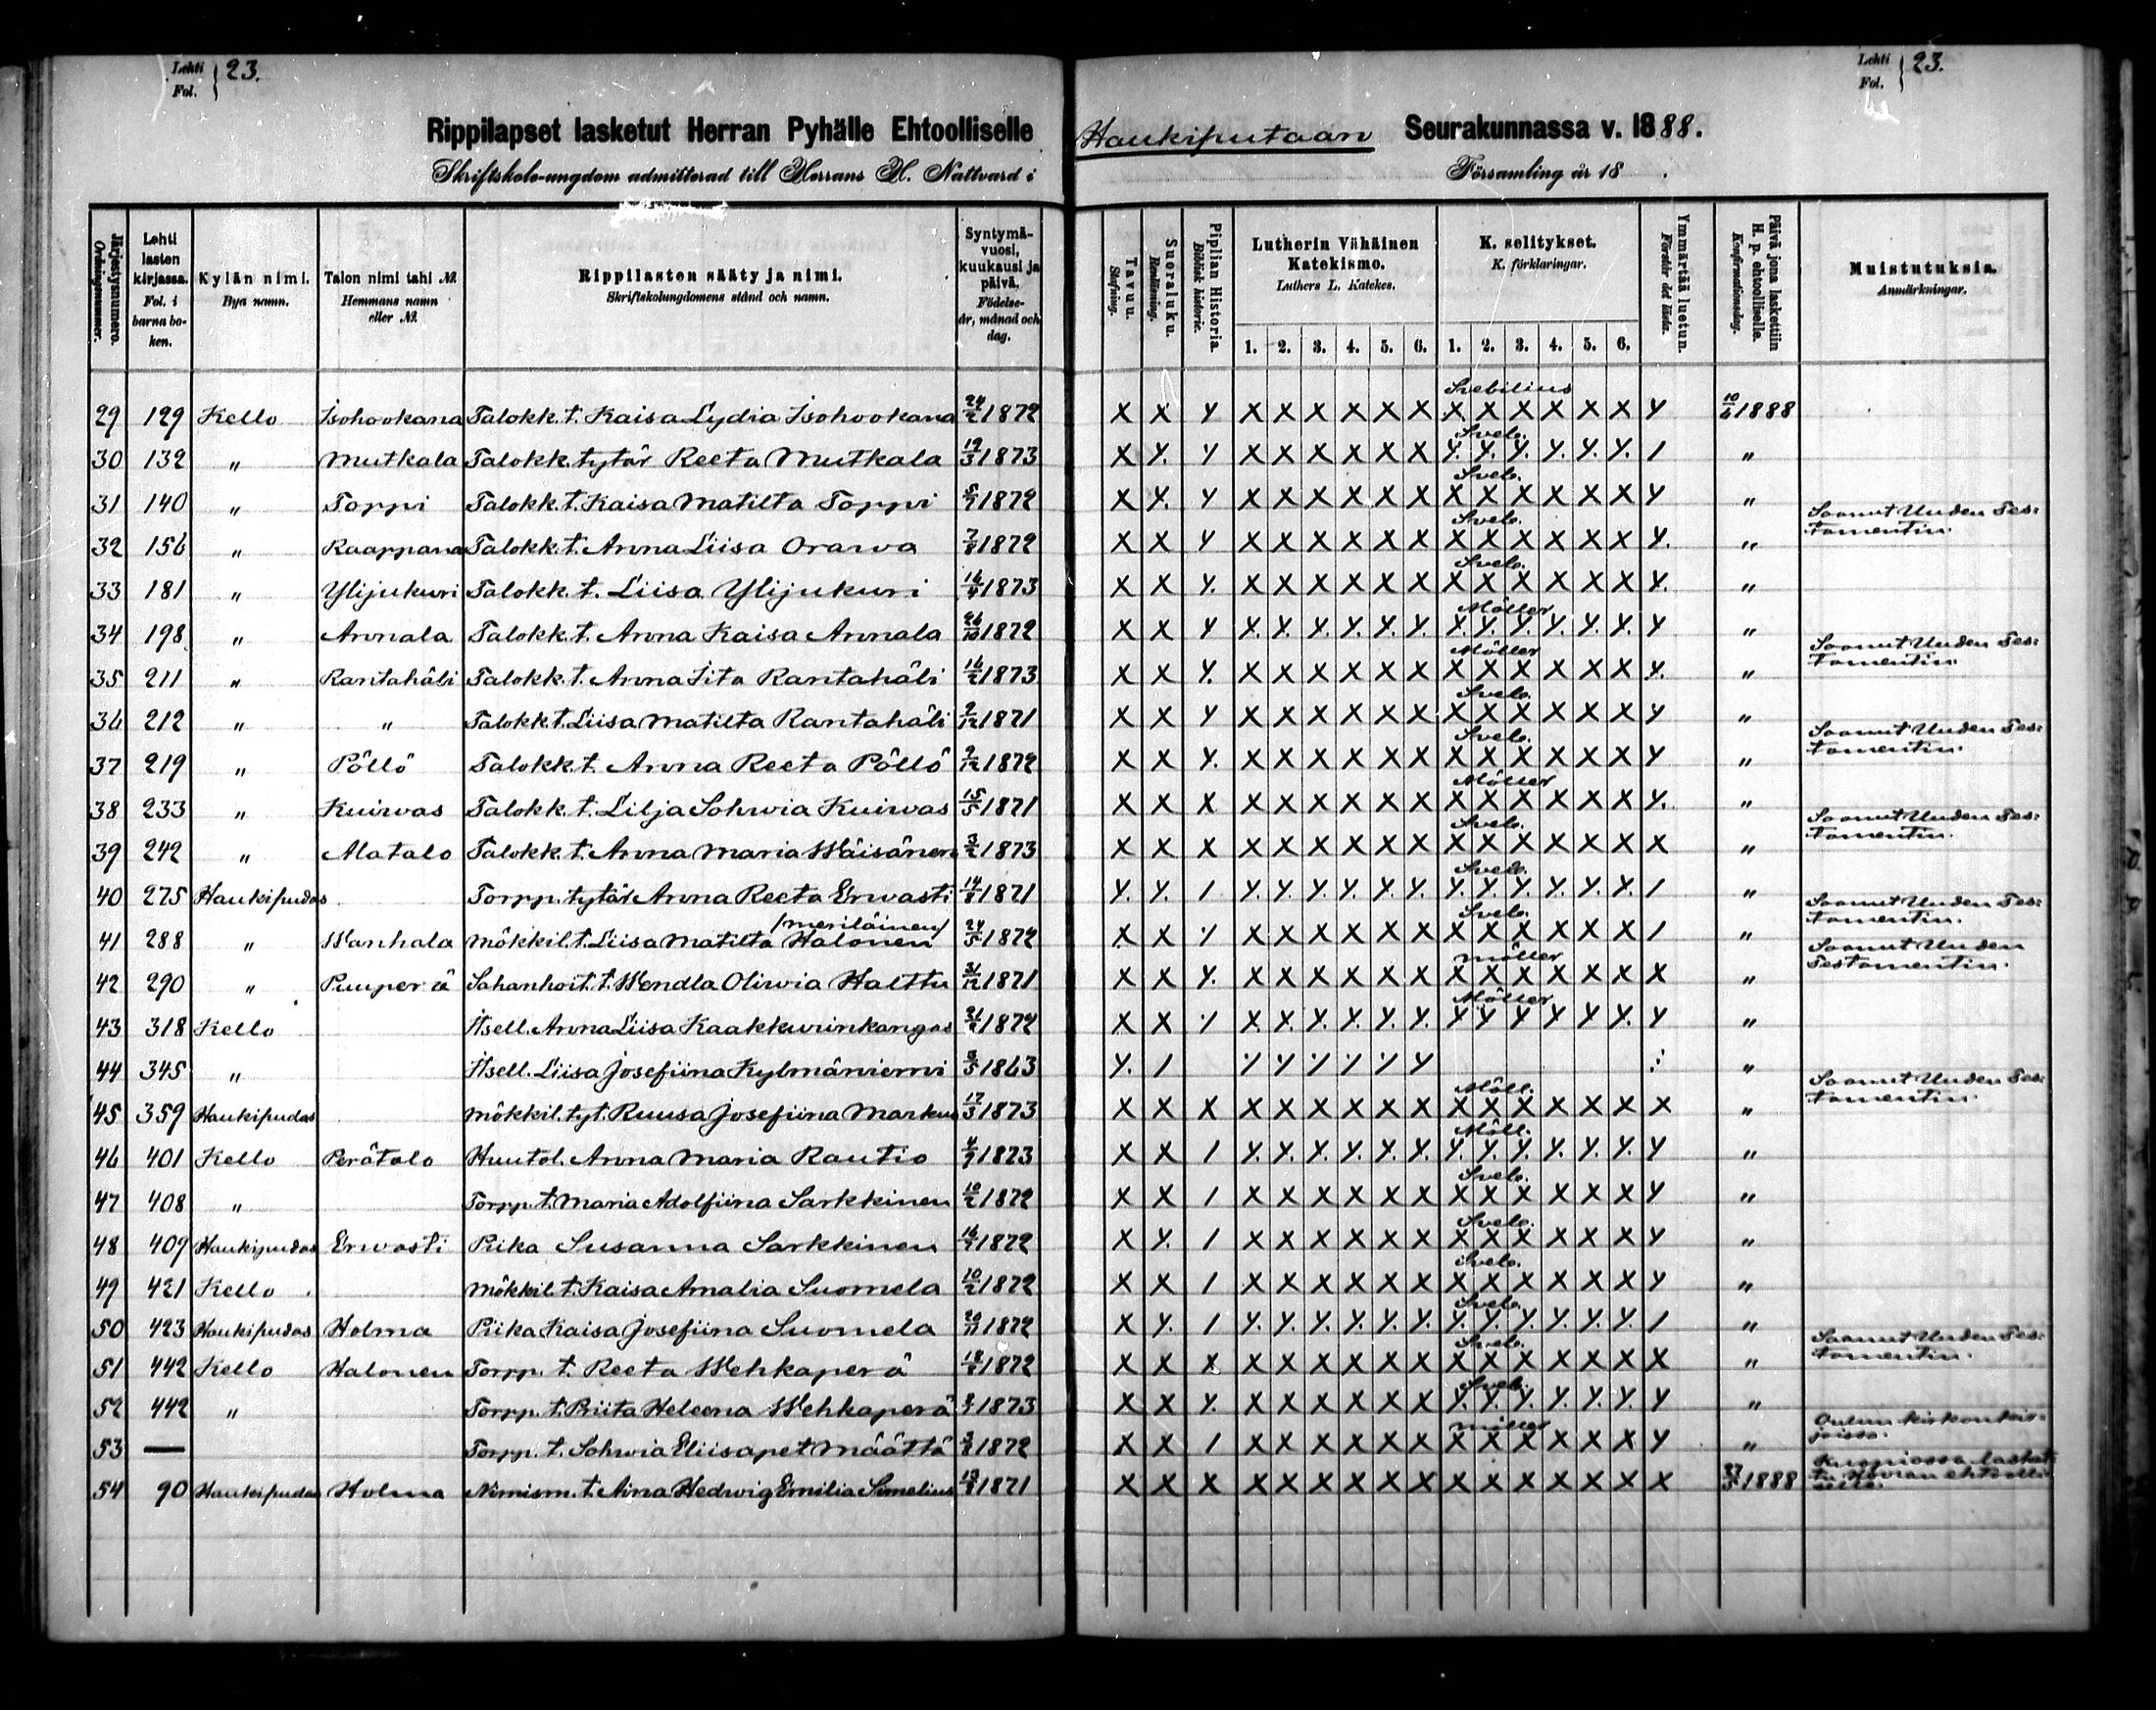 Lehti Fol. } 23.
Lehti Fol. } 23.
Rippilapset lasketut Herran Pyhälle Ehtoolliselle Haukiputaan Seurakunnassa v. 1888.
Skriftskolo-ungdom admitterad till Herrans H. Nattvard i Församling år 18 .
Järjestysnummero. Ordningsnummer.
Lehti lasten kirjassa. Fol. i barna boken.
Kylän nimi. Bya namn.
Talon nimi tahi №. Hemmans namn eller №.
Rippilasten sääty ja nimi. Skriftskolungdomens stånd och namn.
Syntymävuosi, kuukausi ja päivä. Födelseår, månad och dag.
Tavuu. Stafning.
Suoraluku. Renläsning.
Piplian Historia. Biblisk historie.
Lutherin Vähäinen Katekismo. Luthers L. Katekes. 1. 2. 3. 4. 5. 6.
K. selitykset. K. förklaringar. 1. 2. 3. 4. 5. 6.
Ymmärtää luetun. Förstår det lästa.
Päivä jona laskettiin H. p. ehtoolliselle. Konfirmationsdag.
Muistutuksia. Anmärkningar.
29 129 Kello Isohookana Talokk. t. Kaisa Lydia Isohookana 24/2 1872 X X Y X X X X X X Svebilius X X X X X X Y 10/6 1888
30 132 " Mutkala Talokk. tytär Reeta Mutkala 19/3 1873 X Y. Y X X X X X X Sveb. Y. Y. Y. Y. Y. Y. / "
31 140 " Toppi Talokk. t. Kaisa Matilta Toppi 5/7 1872 X Y. Y X X X X X X Sveb. X X X X X X Y "
32 156 " Kaappana Talokk. t. Anna Liisa Orawa 1872 X X Y X X X X X X Sveb. X X X X X X Y. " Saanut Uuden Testamentin.
33 181 " Ylijukuri Talokk. t. Liisa Ylijukuri 16/4 1873 X X Y. X X X X X X Sveb. X X X X X X Y. "
34 198 " Annala Talokk. t. Anna Kaisa Annala 26/10 1872 X X Y Y. Y. Y. Y. Y. Y. Möller Y. Y. Y. Y. Y. Y. Y "
35 211 " Rantahäli Talokk. t. Anna Iita Rantahäli 16/2 1873 X X Y. X X X X X X Möller X X X X X X Y. " Saanut Uuden Testamentin.
36 212 " " Talokk. t. Liisa Matilta Rantahäli 2/12 1871 X X Y X X X X X X Sveb. X X X X X X Y "
37 219 " Pöllö Talokk. t. Anna Reeta Pöllö 2/12 1872 X X Y. X X X X X X Sveb. X X X X X X Y " Saanut Uuden Testamentin.
38 233 " Kuiwas Talokk. t. Lilja Sohwia Kuiwas 15/5 1871 X X X X X X X X X Möller X X X X X X Y. "
39 242 " Alatalo Talokk. t. Anna Maria Wäisänen 3/2 1873 X X X X X X X X X Sveb. X X X X X X X " Saanut Uuden Testamentin.
40 275 Haukipudas Torpp. tytär Anna Reeta Erwasti 1871 Y. Y. / Y. Y. Y. Y. Y. Y. Sveb. Y. Y. Y. Y. Y. Y. / "
41 288 " Wanhala Mökkil. t. Liisa Matilta /Meriläinen/ Halonen 24/5 1872 X X Y X X X X X X Sveb. X X X X X X / " Saanut Uuden Testamentin.
42 290 " Puuperä Sahanhoit. t. Wendla Oliwia Halttu 31/12 1871 X X Y. X X X X X X Möller X X X X X X X " Saanut Uuden Testamentin.
43 318 Kello Itsell. Anna Liisa Kaakkurinkangas 1872 X X Y X X. Y. Y. Y. Y. Möller Y Y Y Y Y Y. Y "
44 345 " Itsell. Liisa Josefiina Kylmäniemi 1863 Y. / Y Y Y Y Y Y "
45 359 Haukipudas Mökkil. tyt. Ruusa Josefiina Markus 17/3 1873 X X X X X X X X X Möll. X X X X X X X " Saanut Uuden Testamentin.
46 401 Kello Perätalo Huutol. Anna Maria Rautio 4/7 1873 X X / Y. Y. Y. Y. Y. Y. Möll. Y. Y. Y. Y. Y. Y. Y "
47 408 " Torpp. t. Maria Adolfiina Sarkkinen 10/2 1872 X X / X X X X X X Sveb. X X X X X X Y "
48 409 Haukipudas Erwasti Piika Susanna Sarkkinen 16/7 1872 X Y. / X X X X X X Sveb. X X X X X X Y "
49 421 Kello Mökkil. t. Kaisa Amalia Suomela 10/2 1872 X X / X X X X X X Sveb. X X X X X X Y "
50 423 Haukipudas Holma Piika Kaisa Josefiina Suomela 20/11 1872 X Y. / Y. Y. Y. Y. Y. Y. Sveb. Y. Y. Y. Y. Y. Y. / "
51 442 Kello Halonen Torpp. t. Reeta Wehkaperä 1872 X X X X X X X X X Sveb. X X X X X X X " Saanut Uuden Testamentin.
52 442 " Torpp. t. Briita Heleena Wehkaperä 1873 X X Y. X X X X X X Sveb. Y. Y. Y. Y. Y. Y. Y "
53 — Torpp. t. Sohwia Eliisapet Määttä 1872 X X / X X X X X X Möller X X X X X X Y " Oulun kirkonkirjoissa.
54 90 Haukipudas Holma Nimism. t. Aina Hedwig Emilia Simelius 1871 X X X X X X X X X X X X X X X X 1888 Kuopiossa laskettu Herran ehtoolliselle.